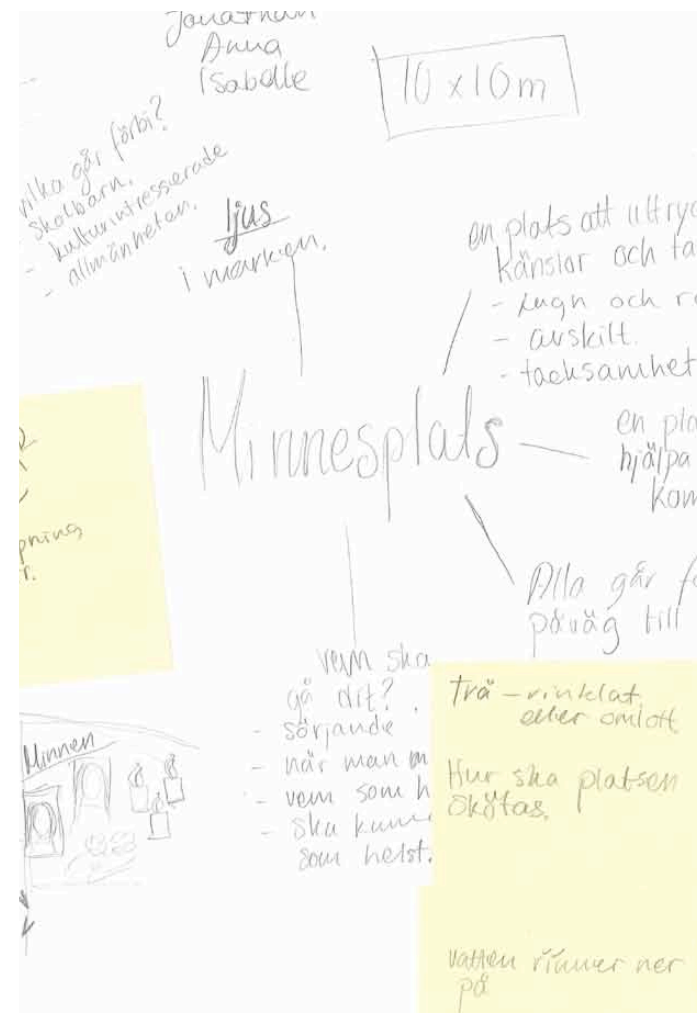 Jonathan
Anna
Isabelle
10 x 10 m
vilka går förbi?
- skolbarn.
- kulturintresserade
- allmänheten.
ljus
i marken.
en plats att uttryc
känslor och ta
- Lugn och r
- avskilt.
- tacksamhet
Minnesplats
en pla
hjälpa
kom
Alla går f
påväg till
pning
r.
vem ska
gå dit?
- sörjande
- när man m
- vem som h
- ska kunn
som helst.
Minnen
Trä – vinklat
eller omlott
Hur ska platsen
skötas.
vatten rinner ner
på